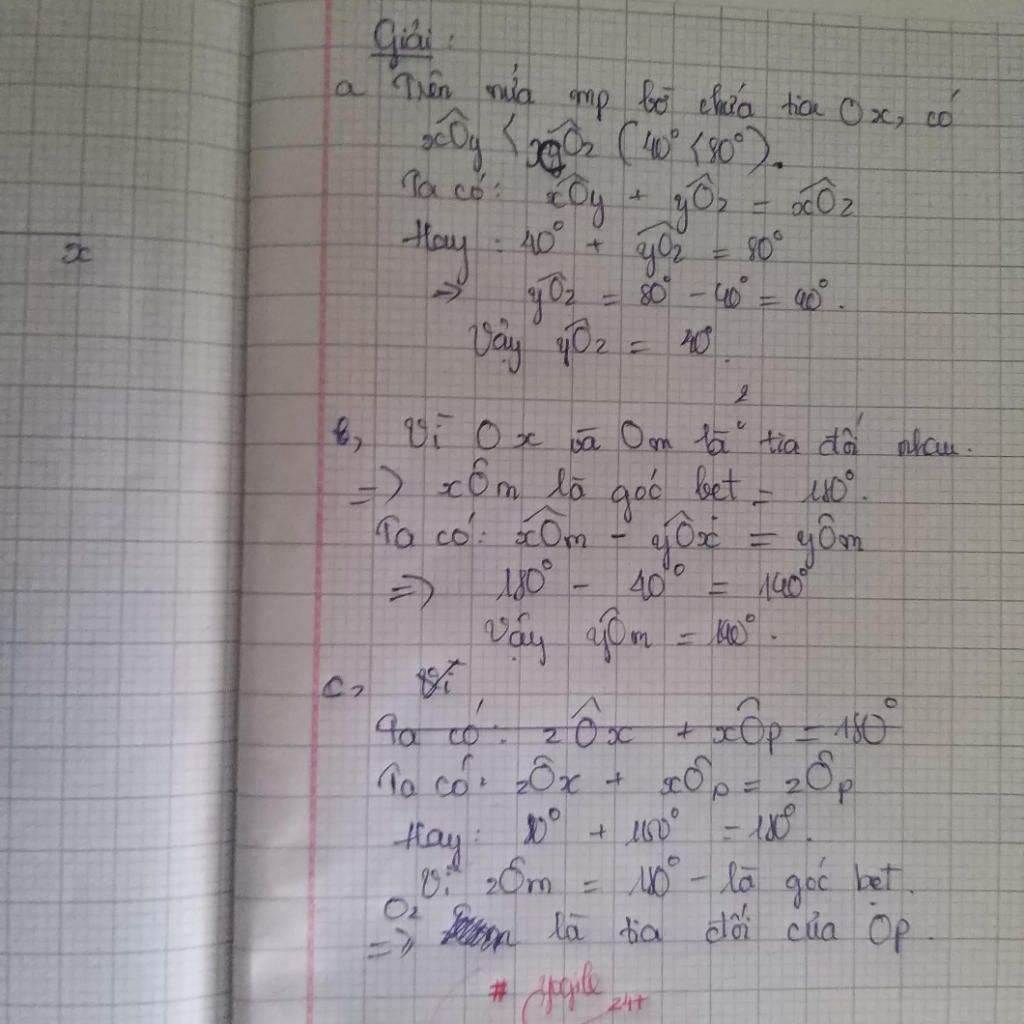 Giải:
a Trên nửa mp bờ chứa tia Ox, có
xÔy < xÔz (40° < 80°).
Ta có: xÔy + yÔz = xÔz
x
Hay: 40° + yÔz = 80°
=> yÔz = 80° - 40° = 40°.
Vậy yÔz = 40°.
2
b, Vì Ox và Om là tia đối nhau.
=> xÔm là góc bẹt = 180°.
Ta có: xÔm - yÔx = yÔm
=> 180° - 40° = 140°
Vậy yÔm = 140°.
c, Vì
Ta có: zÔx + xÔp = 180°
Ta có: zÔx + xÔp = zÔp
Hay: + = 180°.
Vì zÔm = 180° - là góc bẹt.
Oz
=> là tia đối của Op.
#
24+